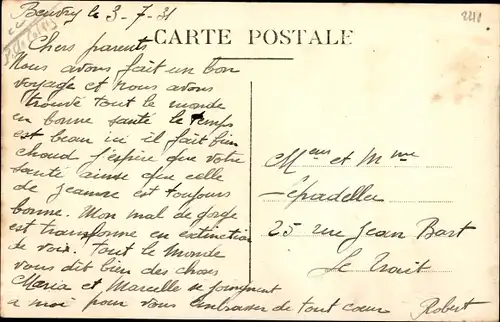 Beuvry le 3-7-31
2210
P. de Calais
CARTE POSTALE
Chers parents
Nous avons fait un bon
voyage et nous avons
trouvé tout le monde
en bonne santé le temps
est beau ici il fait bien
chaud j'espère que votre
santé ainsi que celle
de Jeanne est toujours
bonne. Mon mal de gorge
est transformé en extinction
de voix. Tout le monde
vous dit bien des choses
Maria et Marcelle se joignent
a moi pour vous embrasser de tout cœur
Robert
Meur et Mme
Lepadellec
25 rue Jean Bart
Le Trait